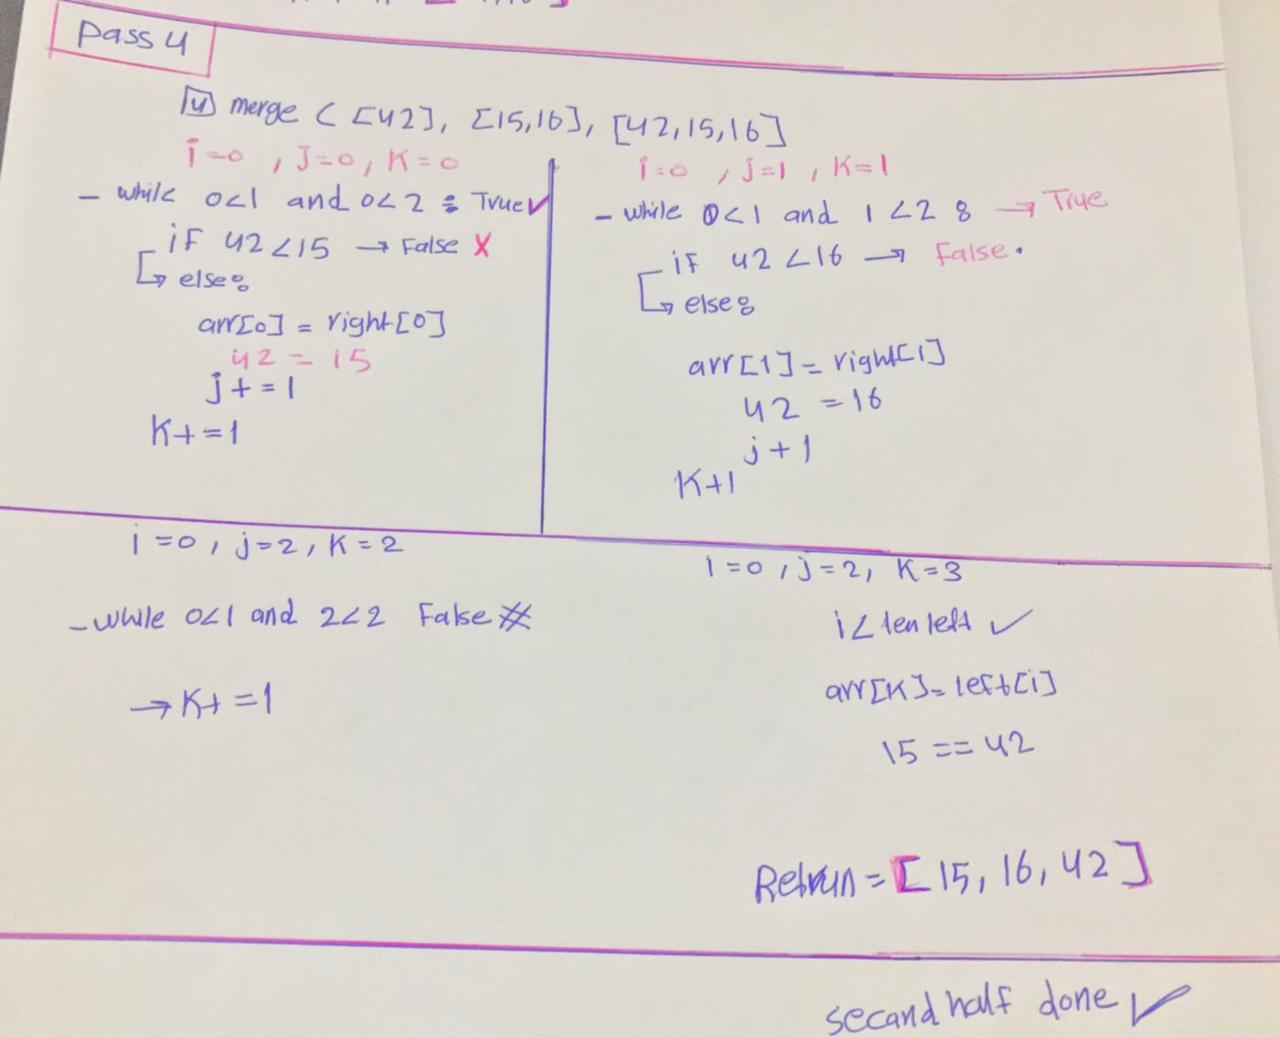 Pass 4
4 merge ( [42], [15,16], [42,15,16]
i=0 , J=0, K=0
- while 0<1 and 0<2 : True ✓
if 42<15 → False X
↳ else:
arr[0] = right[0]
42 = 15
j+=1
K+=1
i=0 , j=1 , K=1
- while 0<1 and 1<2 : → True
if 42<16 → False.
↳ else:
arr[1]=right[1]
42 =16
j+1
K+1
i=0, j=2, K=2
- while 0<1 and 2<2 False #
→ K+=1
i=0, j=2, K=3
i< len left ✓
arr[K]= left[i]
15 == 42
Retrun = [15, 16, 42]
secand half done ✓